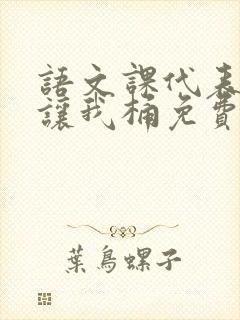 語文課代表
讓我桶免費
葉鳥螺子